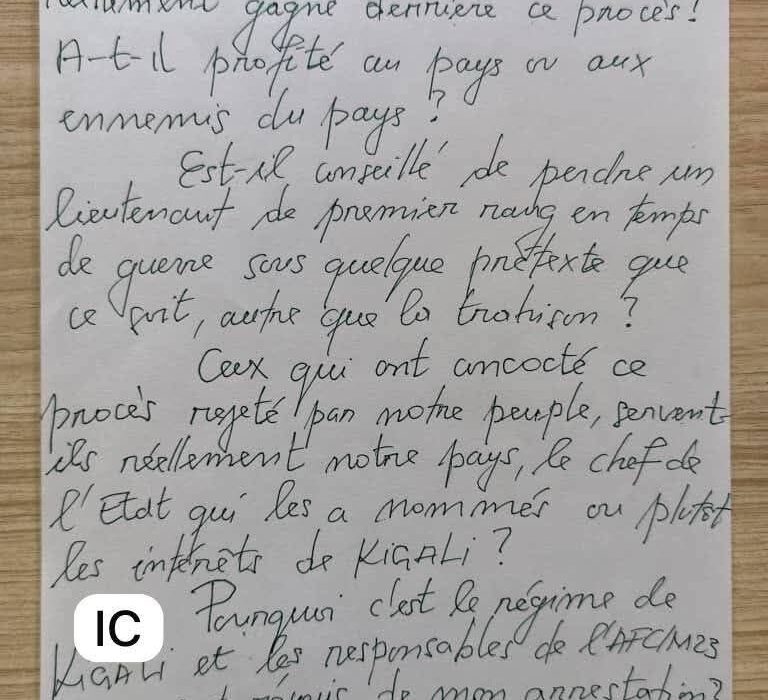 gagné dernière ce procès!
A-t-il profité au pays ou aux
ennemis du pays?
Est-il conseillé de perdre un
lieutenant de premier rang en temps
de guerre sous quelque prétexte que
ce soit, autre que la trahison?
Ceux qui ont concocté ce
procès rejeté par notre peuple, servent-
ils réellement notre pays, le chef de
l'Etat qui les a nommés ou plutôt
les intérêts de KIGALI?
Pourquoi c'est le régime de
IC
KIGALI et les responsables de l'AFC/M23
de mon arrestation?